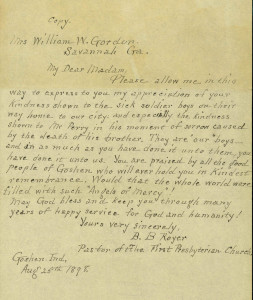 Copy.
Mrs William W. Gordon,
Savannah Ga.
My Dear Madam.
Please allow me in this
way to express to you my appreciation of your
kindness shown to the sick soldier boys on their
way home to our city, and especially the kindness
shown to Mr Perry in his moment of sorrow caused
by the death of his brother. They are our boys -
and in as much as you have done it unto them, you
have done it unto us. You are praised by all the good
People of Goshen who will ever hold you in kindest
remembrance. Would that the whole world were
filled with such "Angels of Mercy"!
May God bless and keep you through many
years of happy service for God and humanity!
Yours very sincerely,
B. B Royer
Pastor of the First Presbyterian Church,
Goshen Ind,
Aug 25th 1898.